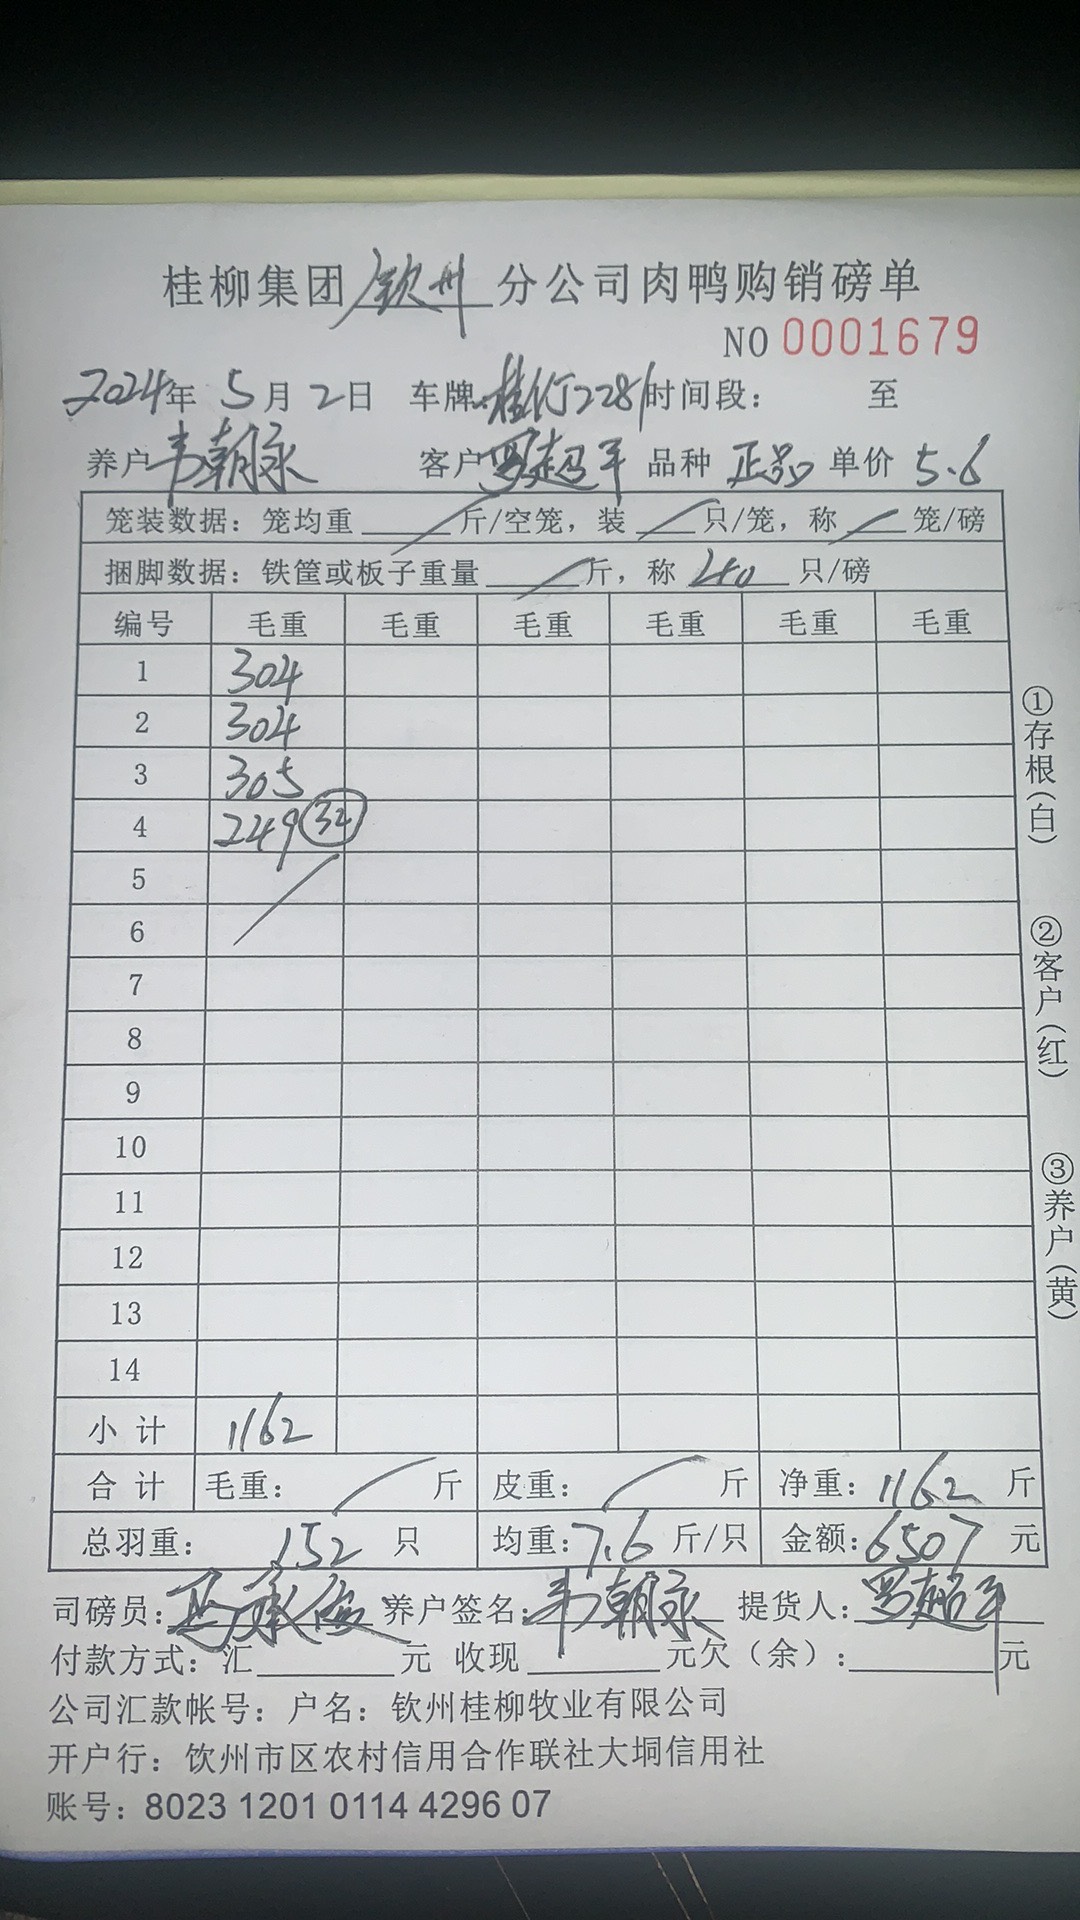 桂柳集团 钦州 分公司肉鸭购销磅单
NO 0001679
2024年 5月 2日 车牌: 桂 2281 时间段: 至
养户 韦朝永 客户 罗超平 品种 正品 单价 5.6
笼装数据: 笼均重 斤/空笼, 装 只/笼, 称 笼/磅
捆脚数据: 铁筐或板子重量 斤, 称 40 只/磅
编号 毛重 毛重 毛重 毛重 毛重 毛重
1 304
2 304
3 305
4 249 32
5
6
7
8
9
10
11
12
13
14
小计 1162
合计 毛重: 斤 皮重: 斤 净重: 1162 斤
总羽重: 152 只 均重: 7.6 斤/只 金额: 6507 元
司磅员: 养户签名: 韦朝永 提货人: 罗超平
付款方式: 汇 元 收现 元欠(余): 元
公司汇款帐号: 户名: 钦州桂柳牧业有限公司
开户行: 钦州市区农村信用合作联社大垌信用社
账号: 8023 1201 0114 4296 07
①存根(白)
②客户(红)
③养户(黄)